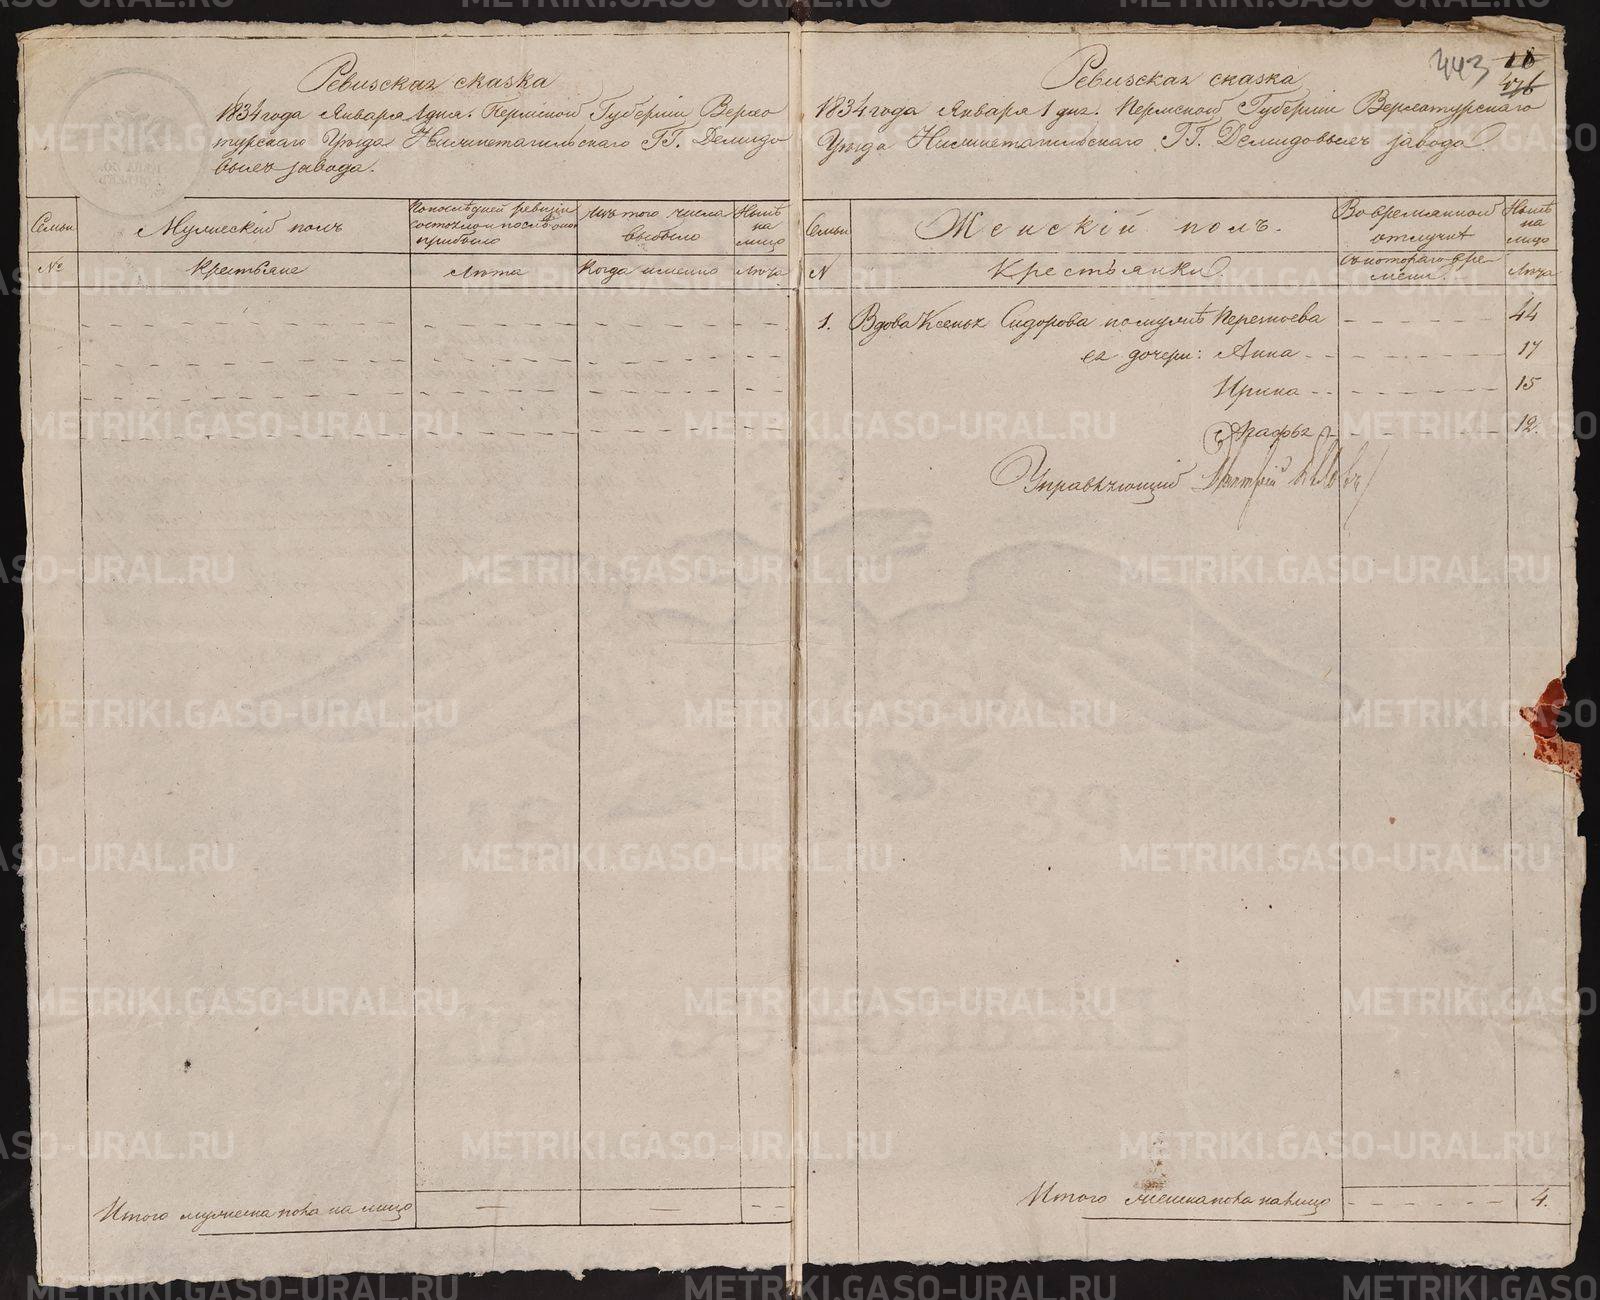 Ревизская сказка
1834 года Января 1 дня. Пермской Губернии Верхо
турскаго Уезда Нижнетагильскаго ГГ. Демидо
выхъ завода.
Семьи
Мужеский полъ
По последней ревизии
состояло и после оной
прибыло
Изъ того числа
выбыло
Ныне
на
лицо
№
Крестьяне
Лета
Когда именно
Лета
Итого мужеска пола на лицо
443
18
Ревизская сказка
1834 года Января 1 дня. Пермской Губернии Верхотурскаго
Уезда Нижнетагильскаго ГГ. Демидовыхъ завода.
Семьи
Женскій полъ.
Во временной
отлучке
Ныне
на
лицо
N
Крестьянки.
съ котораго вре
мени.
Лета
1. Вдова Ксенья Сидорова по муже 44
ея дочери: Анна 17
Ирина 15
Агафья 12.
Управляющий
Итого женска пола на лицо 4.
METRIKI.GASO-URAL.RU